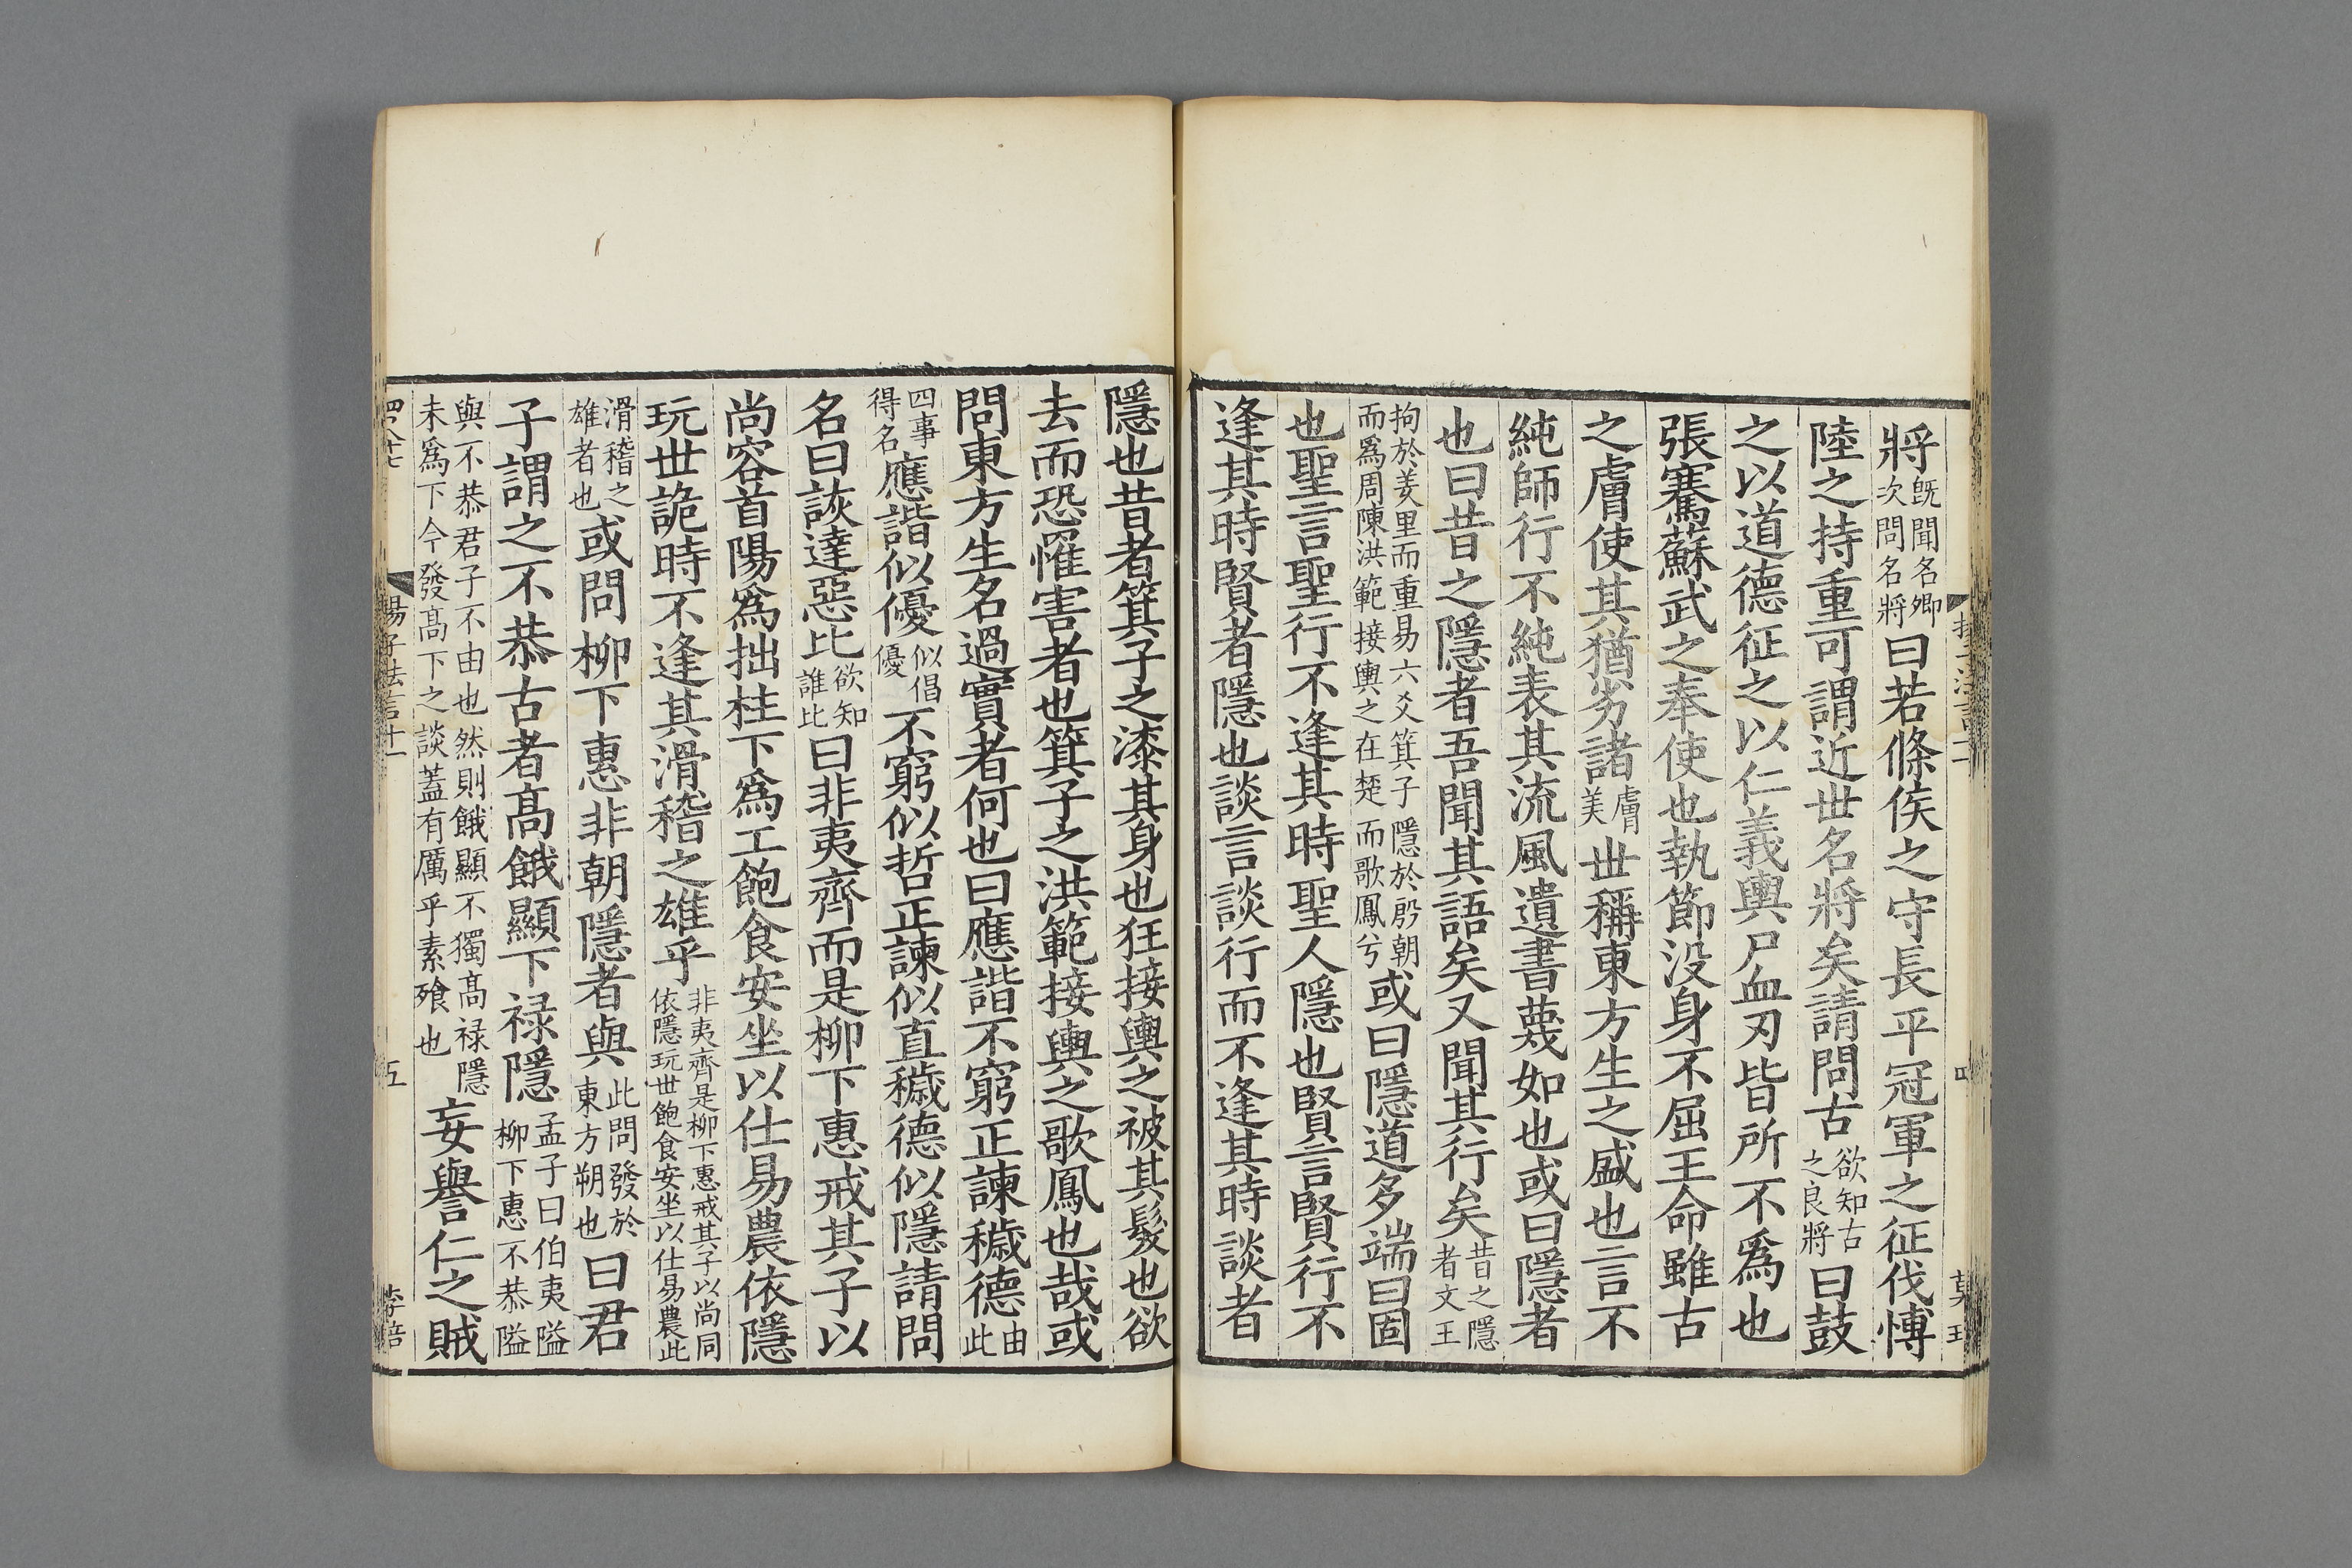 將既聞名卿次問名將曰若條侯之守長平冠軍之征伐愽
陸之持重可謂近世名將矣請問古欲知古之良將曰鼓
之以道德征之以仁義輿尸血刃皆所不爲也
張騫蘇武之奉使也執節没身不屈王命雖古
之膚使其猶劣諸膚美世稱東方生之盛也言不
純師行不純表其流風遺書蔑如也或曰隱者
也曰昔之隱者吾聞其語矣又聞其行矣昔之隱者文王
拘於羑里而重易六爻箕子隱於殷朝而爲周陳洪範接輿之在楚而歌鳳兮或曰隱道多端曰固
也聖言聖行不逢其時聖人隱也賢言賢行不
逢其時賢者隱也談言談行而不逢其時談者
隱也昔者箕子之漆其身也狂接輿之被其髮也欲
去而恐罹害者也箕子之洪範接輿之歌鳳也哉或
問東方生名過實者何也曰應諧不窮正諫穢德由此
四事得名應諧似優似倡優不窮似哲正諫似直穢德似隱請問
名曰詼達惡比欲知誰比曰非夷齊而是柳下惠戒其子以
尚容首陽爲拙柱下爲工飽食安坐以仕易農依隱
玩世詭時不逢其滑稽之雄乎非夷齊是柳下惠戒其子以尚同依隱玩世飽食安坐以仕易農此
滑稽之雄者也或問柳下惠非朝隱者與此問發於東方朔也曰君
子謂之不恭古者高餓顯下禄隱孟子曰伯夷隘柳下惠不恭隘
與不恭君子不由也然則餓顯不獨高禄隱未爲下今發高下之談蓋有厲乎素飱也妄譽仁之賊
楊子法言十一
五